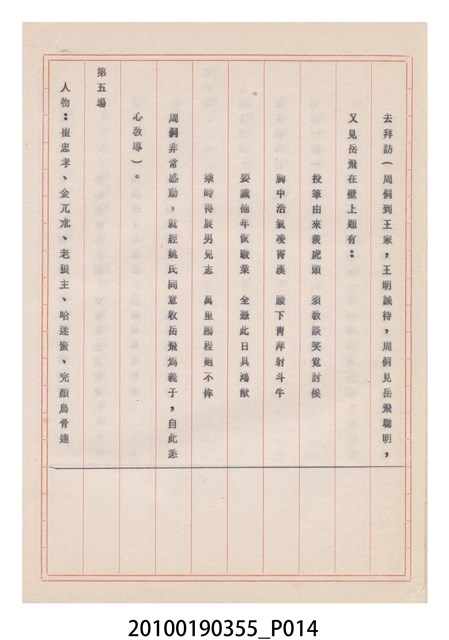 去拜訪(周侗到王家,王明誠待,周侗見岳飛聰明,
又見岳飛在壁上題有:
投筆由來羨虎頭 須教談笑覓封侯
胸中浩氣凌霄漢 腰下青萍射斗牛
英識他年恢駿業 全憑此日具鴻猷
乘時得展男兒志 萬里鵬程迥不侔
周侗非常感動,就經姚氏同意收岳飛爲義子,自此悉
心教導)。
第五場
人物:崔忠孝、金兀朮、老狼主、哈迷蚩、完顏烏骨達
20100190355_P014